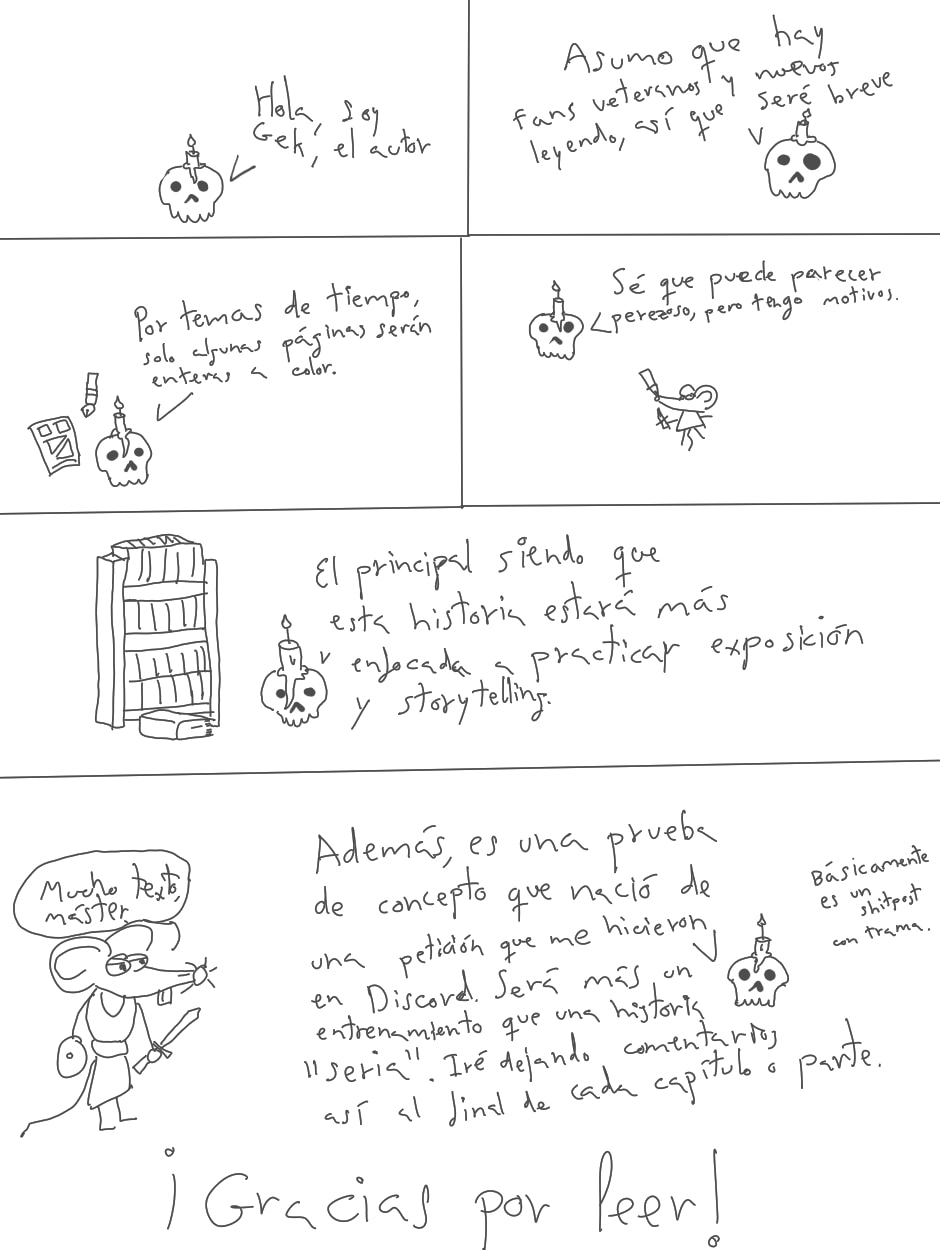 Hola, soy
Gek, el autor
Asumo que hay
fans veteranos y nuevos
leyendo, así que seré breve
Por temas de tiempo,
solo algunas páginas serán
enteras a color.
Sé que puede parecer
perezoso, pero tengo motivos.
El principal siendo que
esta historia estará más
enfocada a practicar exposición
y storytelling.
Mucho texto,
máster
Además, es una prueba
de concepto que nació de
una petición que me hicieron
en Discord. Será más un
entrenamiento que una historia
"seria". Iré dejando comentarios
así al final de cada capítulo o parte.
Básicamente
es un
shitpost
con trama.
¡Gracias por leer!